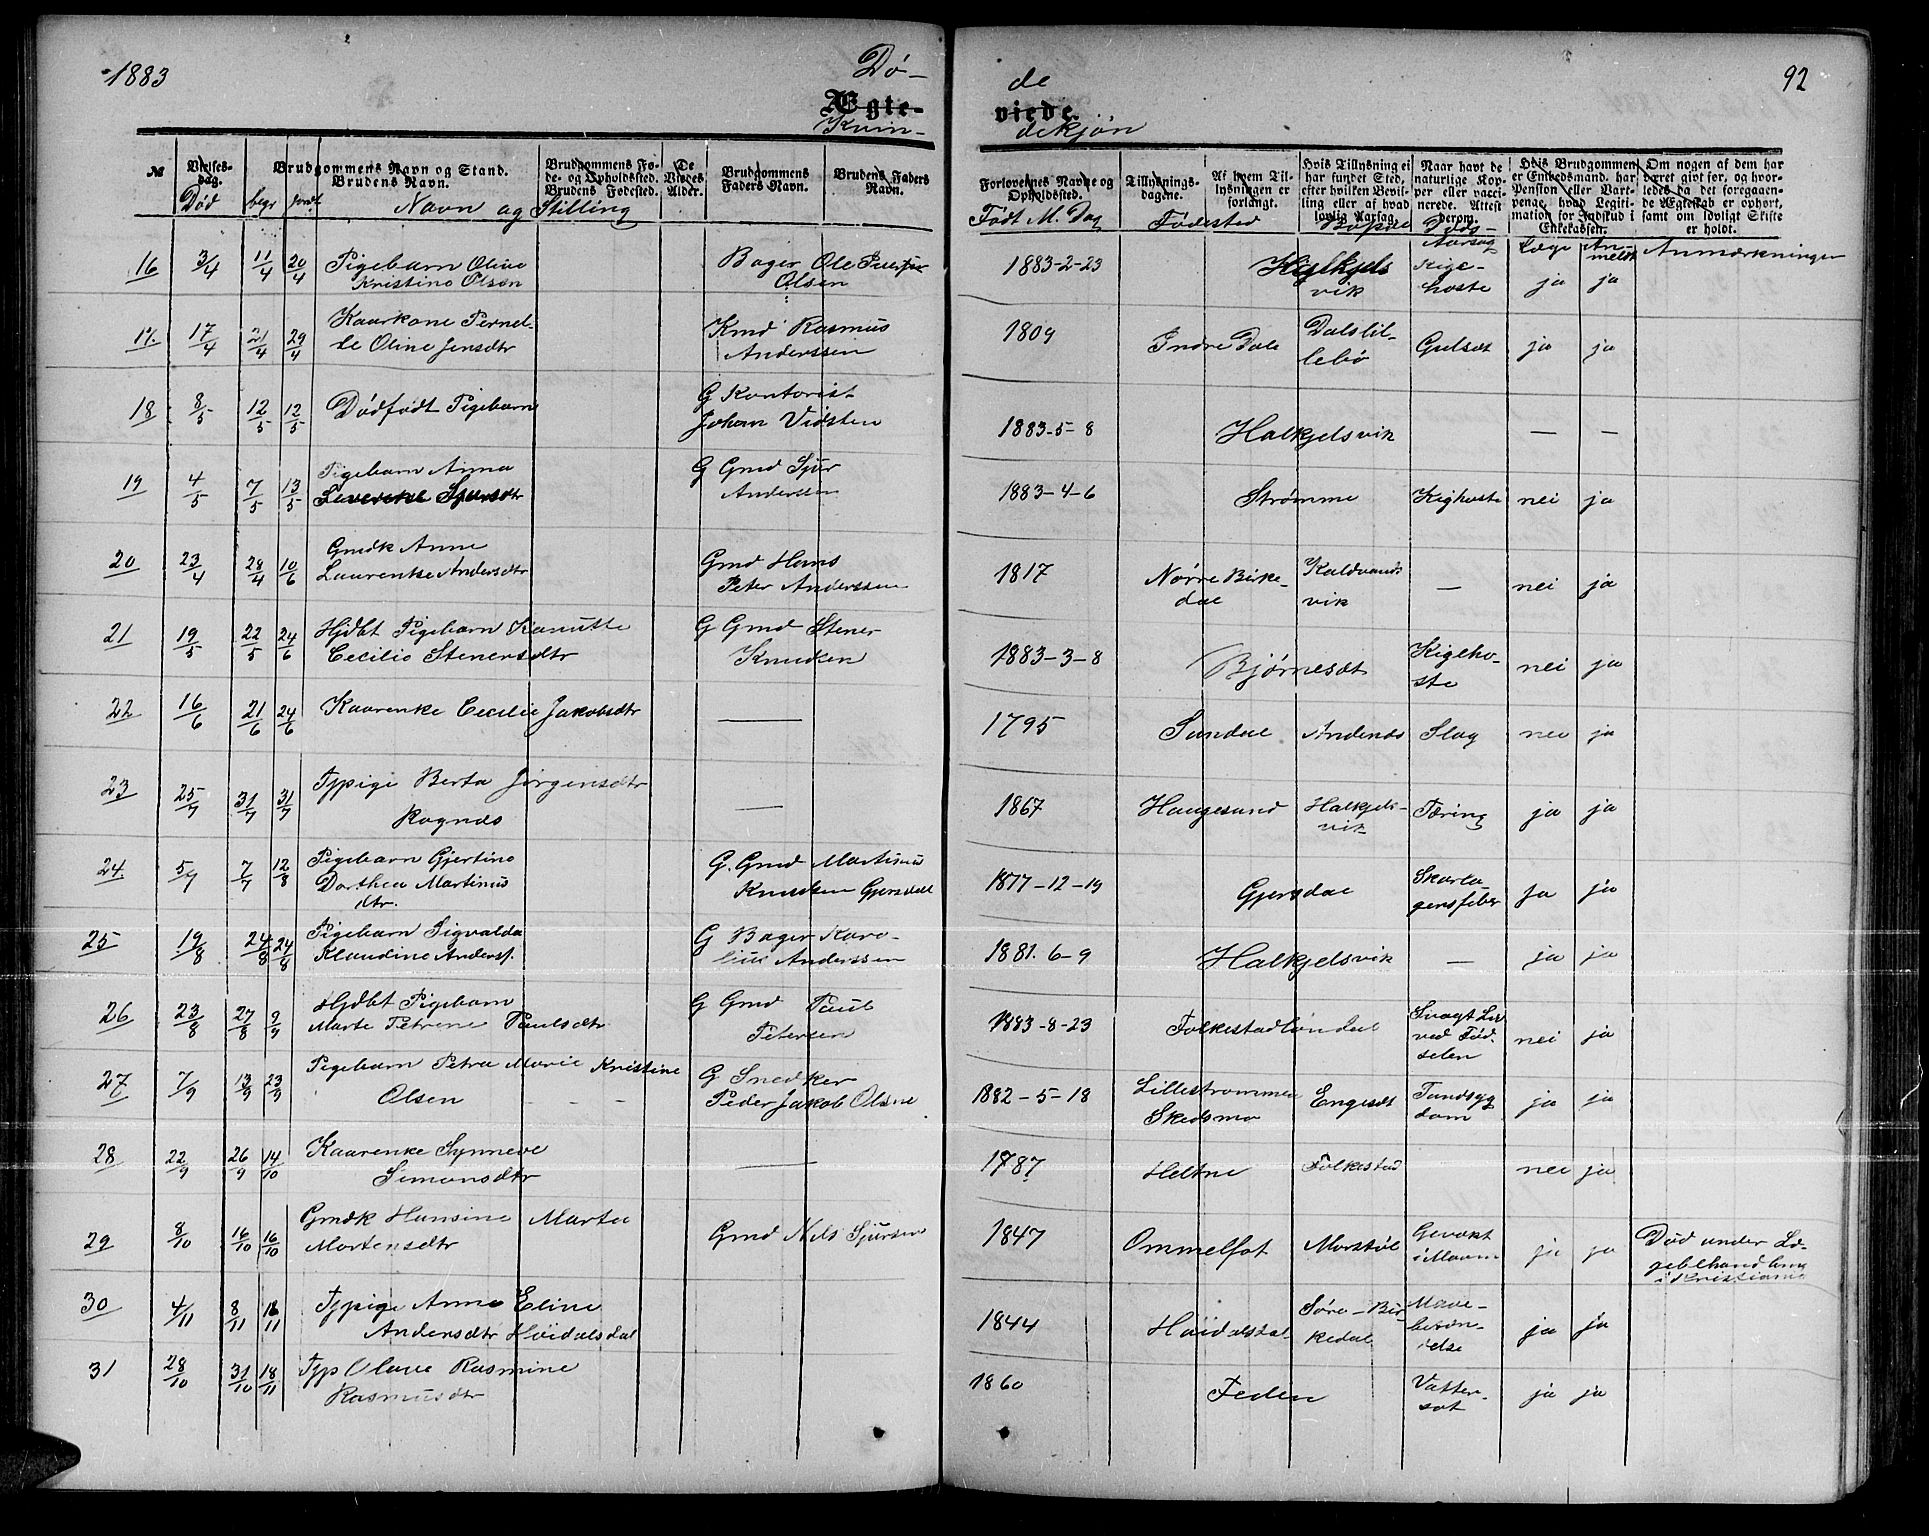 1883
Dø-
de
92
Ægte-
viede.
Kvin-
dekjøn
№
Vielses-
dag.
Død
begr
jordf
Brudgommens Navn og Stand.
Brudens Navn.
Navn og Stilling
Brudgommens Fø-
de- og Opholdssted.
Brudens Fødested.
De
Viedes
Alder.
Brudgommens
Faders Navn.
Brudens Faders
Navn.
Forlovernes Navne og
Opholdssted.
Født M. Dag
Tillysnings-
dagene.
Fødested
Af hvem Til-
lysningen er
forlangt.
Hvis Tillysning ei
har fundet Sted,
efter hvilken Bevil-
ling eller af hvad
lovlig Aarsag.
Bopæl
Naar havt de
naturlige Kop-
per eller vacci-
nerede. Attest
derom.
Døds-
Aarsag
Hvis Brudgommen
er Enkemand, har
Pension eller Vart-
penge, hvad Legiti-
mation for Indskud i
Enkekassen.
Læge
An-
meldt
Om nogen af dem har
været givt før, og hvor-
ledes da det foregaaen-
de Ægteskab er ophørt,
samt om lovligt Skifte
er holdt.
Anmærkninger
16 3/4 11/4 20/4 Pigebarn Oline Bager Ole Peter 1883-2-23 Kige- ja ja
Kristine Olsen Olsen vik hoste
17. 17/4 21/4 29/4 Kaarkone Pernel- Kmd Rasmus 1809 Indre Dale Dalslil- Gulsot ja ja
le Oline Jensdtr Anderssen lebø
18 8/5 12/5 12/5 Dødfødt Pigebarn G Kontorist 1883-5-8 Halkjelsvik — —
Johan Vidsten
19 4/5 7/5 13/5 Pigebarn Anna G Gmd Sjur 1883-4-6 Strømme Kighoste nei ja
Sjursdtr Anderssen
20 23/4 28/4 10/6 Gmdk Anne Gmd Hans 1817 Nørre Birke- Kaldvands — nei ja
Laurentse Andersdtr Peter Anderssen dal vik
21 19/5 22/5 24/6 Hjdbt Pigebarn Kanutte G Gmd Stener 1883-3-8 Bjørneset Kigeho- nei ja
Cecilie Stenersdtr Knudsen ste
22 16/6 21/6 24/6 Kaarenke Cecilie Jakobsdtr — 1795 Sundal Andenæs Slag nei ja
23 25/7 31/7 31/7 Tjpige Berta Jørgensdtr — 1867 Haugesund Halkjels- Tæring ja ja
Ragnæs vik
24. 5/7 7/7 12/8 Pigebarn Gjertine G. Gmd Martinus 1877-12-19 Gjersdal Skarla- ja ja
Dorthea Martinus Knudsen Gjersdal gensfeber
dtr.
25 19/8 24/8 24/8 Pigebarn Sigvalda G Bager Karo- 1881. 6-9 Halkjelsvik — ja ja
Klaudine Anderss. lius Anderssen
26 23/8 27/8 9/9 Hjdbt Pigebarn G Gmd Paul 1883-8-23 Folkestadløndal Svagt Liv nei ja
Marte Petrine Paulsdtr Petersen ved Fød-
selen
27 7/9 13/9 23/9 Pigebarn Petra Marie Kristine G Snedker 1882-5-18 Lillestrømmen Engeset Tandsyg ja ja
Olsen Peder Jakob Olsne Skedsmo dom
28 22/9 26/9 14/10 Kaarenke Synneve — 1787 Heltne Folkestad nei ja
Simonsdtr
29 8/10 16/10 16/10 Gmdk Hansine Marta Gmd Nils Sjursen 1847 Ommelfot Morstøl Gevækst ja ja Død under Læ-
Mortensdtr i Maven gebehandling
i Kristiania
30 4/11 8/11 18/11 Tjpige Anne Eline 1844 Høidalsdal Søre-Bir Mave- ja ja
Andersdtr Høidalsdal kedal betæn-
delse
31 28/10 31/10 18/11 Tjp Olave Rasmine 1860 Feden Vatter- ja ja
Rasmusdtr sot